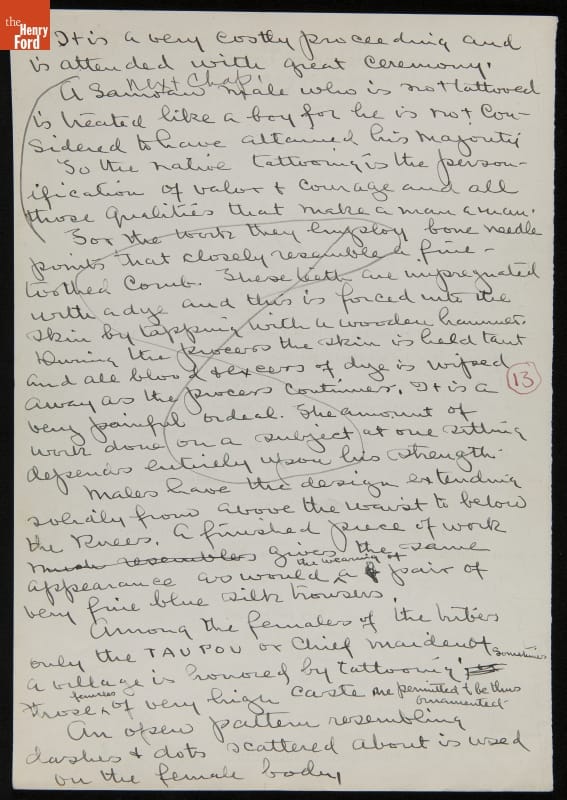 the
Henry
Ford
It is a very costly proceeding and
is attended with great ceremony.
next Chap.
A Samoan male who is not tattooed
is treated like a boy for he is not con-
sidered to have attained his majority
So the native tattooing is the person-
ification of valor & courage and all
those qualities that make a man a man.
For the work they employ bone needle
points that closely resemble a fine-
toothed comb. These teeth are impregnated
with a dye and this is forced into the
skin by tapping with a wooden hammer.
During the process the skin is held taut
and all blood & excess of dye is wiped
away as the process continues. It is a
13
very painful ordeal. The amount of
work done on a subject at one sitting
depends entirely upon his strength.
Males have the design extending
solidly from above the waist to below
the knees. A finished piece of work
much resembles gives the same
appearance as would the wearing of a pair of
very fine blue silk trousers.
Among the females of the tribes
only the TAUPOU or Chief maiden of
a village is honored by tattooing; sometimes
those females of very high caste are permitted to be thus
ornamented.
An open pattern resembling
dashes & dots scattered about is used
on the female body